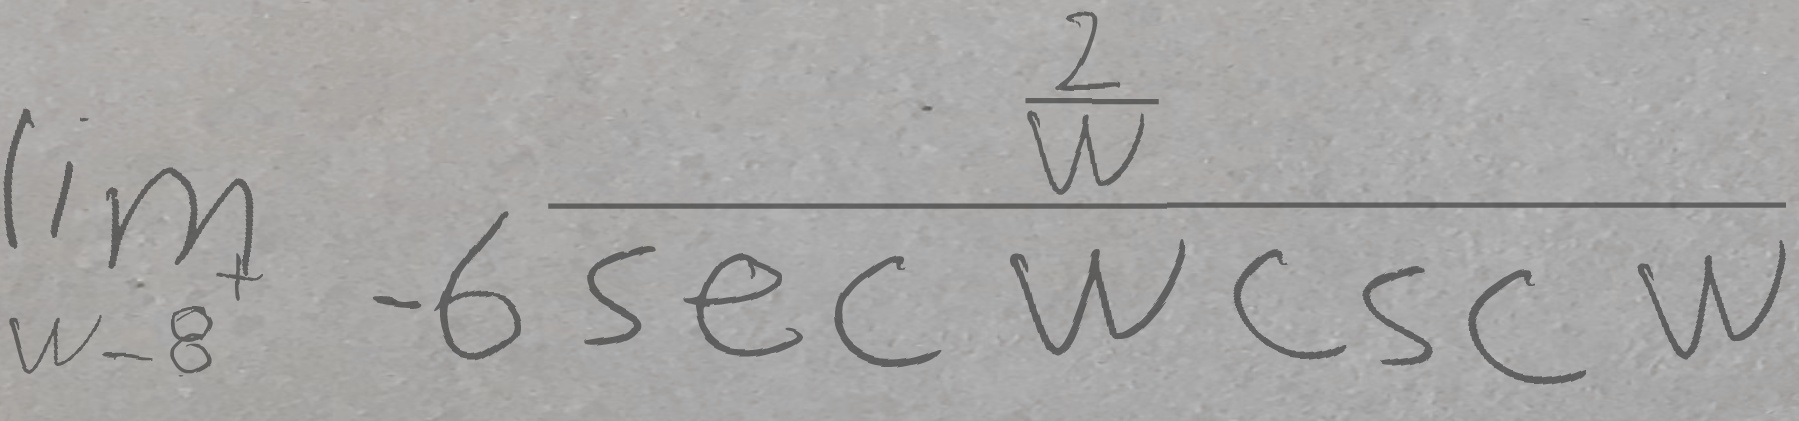 lim w–8⁺ -6 \frac{\frac{2}{w}}{sec w csc w}